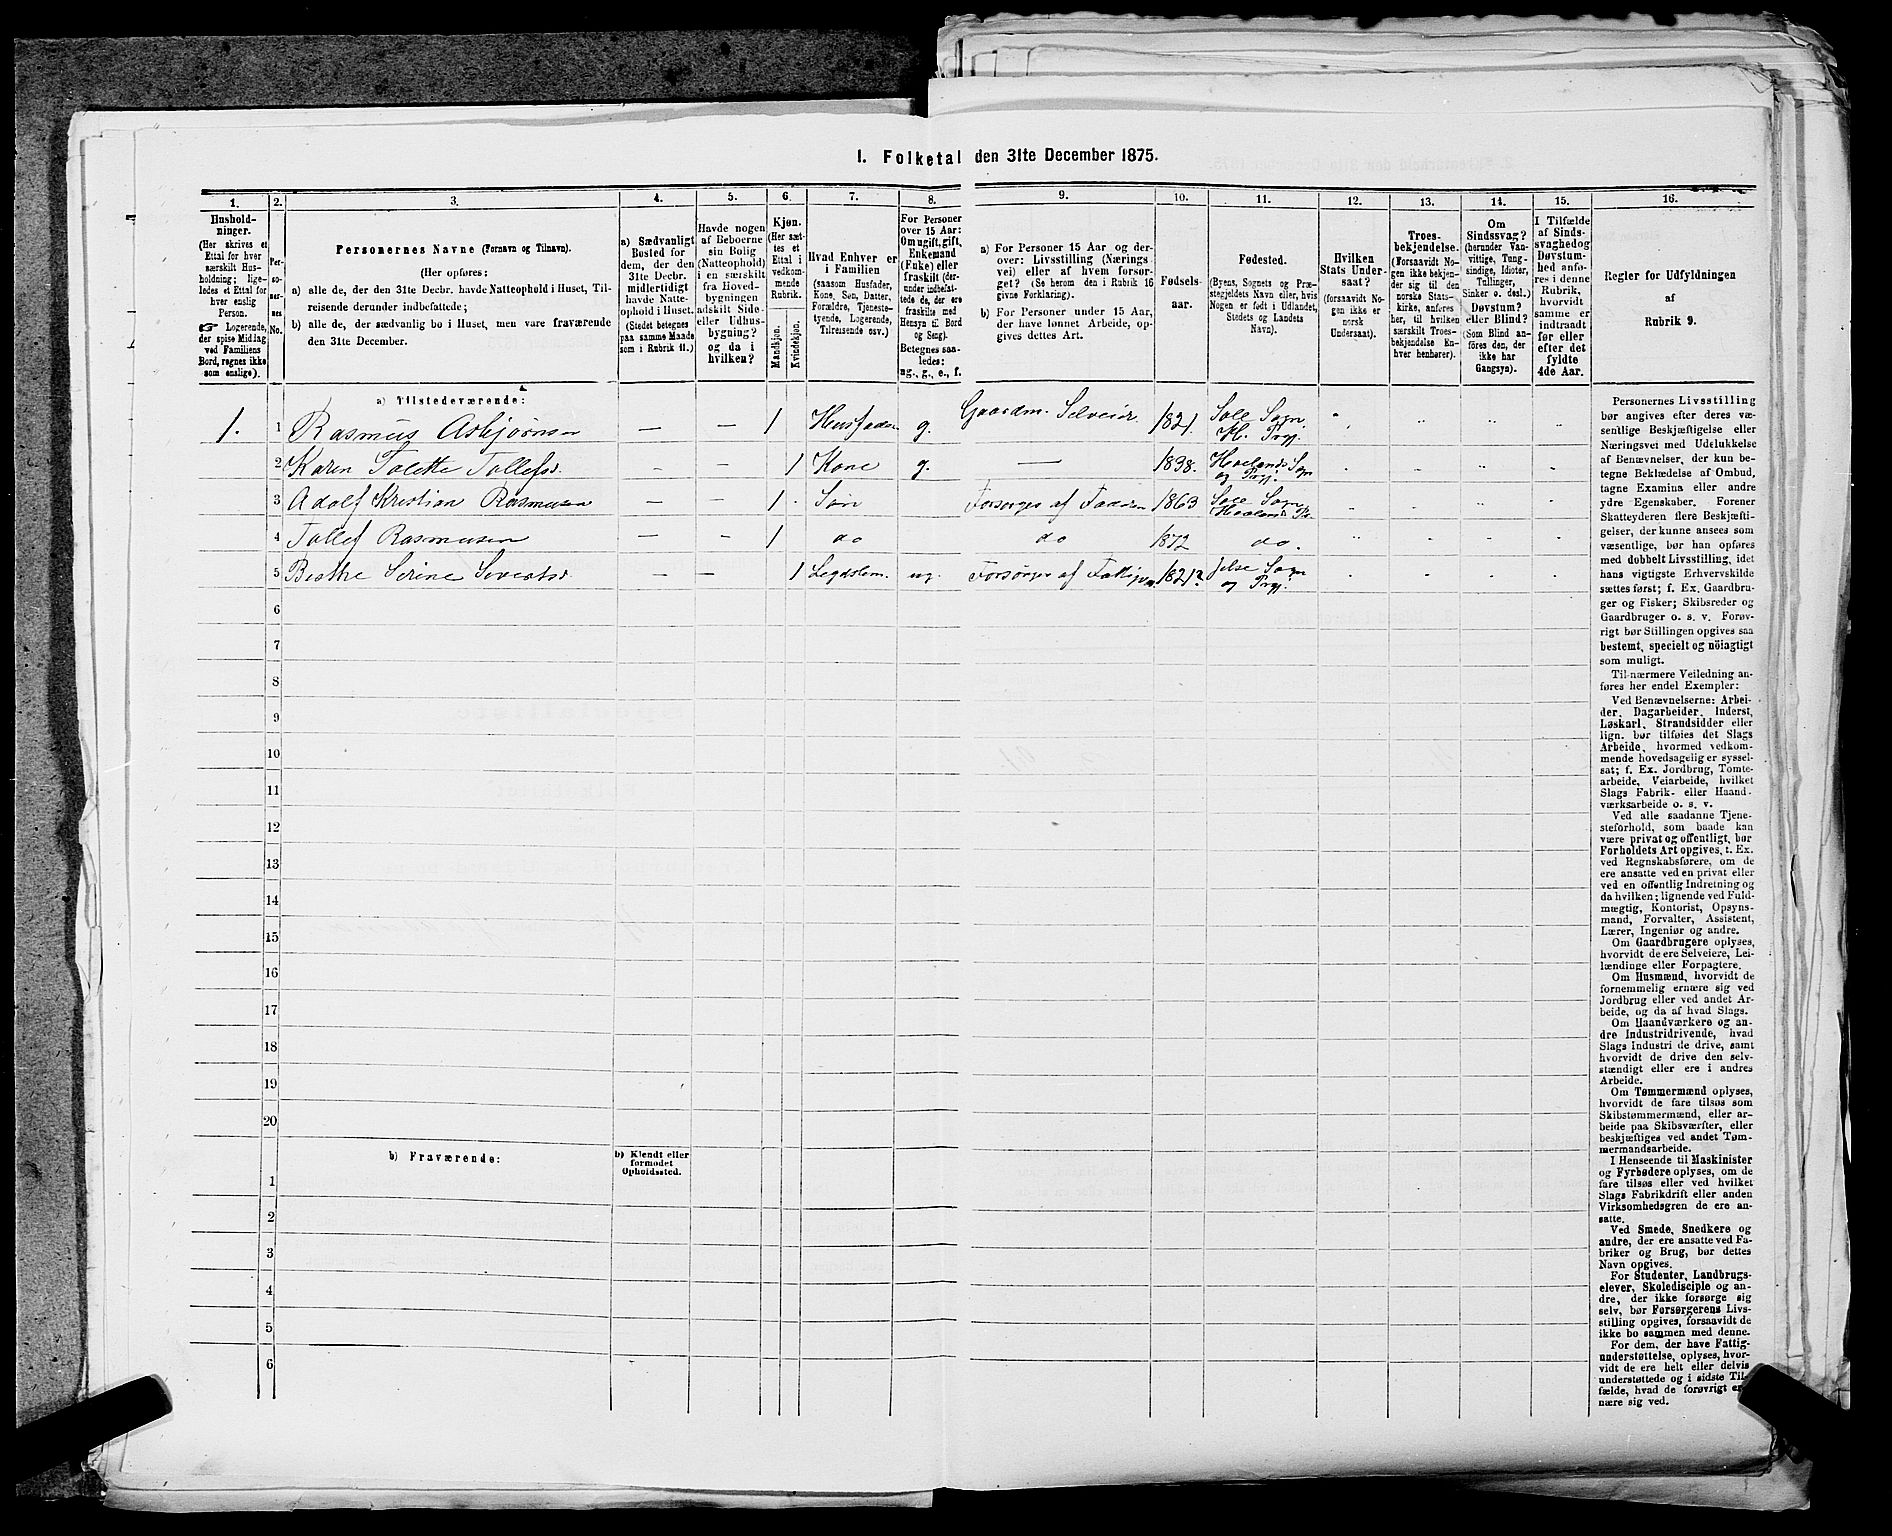 I. Folketal den 31te December 1875.
1. 2. 3. 4. 5. 6. 7. 8. 9. 10. 11. 12. 13. 14. 15. 16.
Hushold-
ninger.
(Her skrives et
Ettal for hver
særskilt Hus-
holdning; lige-
ledes et Ettal for
hver enslig
Person.
☞ Logerende,
der spise Middag
ved Familiens
Bord, regnes ikke
som enslige).
Per-
so-
ner-
nes
No.
Personernes Navne (Fornavn og Tilnavn).
(Her opføres:
a) alle de, der den 31te Decbr. havde Natteophold i Huset, Til-
reisende derunder indbefattede;
b) alle de, der sædvanlig bo i Huset, men vare fraværende
den 31te December.
a) Sædvanligt
Bosted for
dem, der den
31te Decbr.
midlertidigt
havde Natte-
ophold i Huset.
(Stedet betegnes
paa samme Maade
som i Rubrik 11.)
Havde nogen
af Beboerne
sin Bolig
(Natteophold)
i en særskilt
fra Hoved-
bygningen
adskilt Side-
eller Udhus-
bygning?
og da i
hvilken?
Kjøn.
(Her sæt-
tes et
Ettal i
vedkom-
mende
Rubrik.
Mandkjøn.
Kvindekjøn.
Hvad Enhver er
i Familien
(saasom Husfader,
Kone, Søn, Datter,
Forældre, Tjeneste-
tyende, Logerende,
Tilreisende osv.)
For Personer
over 15 Aar:
Om ugift, gift,
Enkemand
(Enke) eller
fraskilt (der-
under indbefat-
tede de, der ere
fraskilte med
Hensyn til Bord
og Seng).
Betegnes saa-
ledes:
ug., g., e., f.
a) For Personer 15 Aar og der-
over: Livsstilling (Nærings-
vei) eller af hvem forsør-
get? (Se herom den i Rubrik 16
givne Forklaring).
b) For Personer under 15 Aar,
der have lønnet Arbeide, op-
gives dettes Art.
Fødsels-
aar.
Fødested.
(Byens, Sognets og Præ-
stegjeldets Navn eller, hvis
Nogen er født i Udlandet,
Stedets og Landets
Navn).
Hvilken
Stats Under-
saat?
(forsaavidt No-
gen ikke er
norsk
Undersaat).
Troes-
bekjendelse.
(Forsaavidt No-
gen ikke bekjen-
der sig til den
norske Stats-
kirke, anføres
her, til hvilken
særskilt Troes-
bekjendelse En-
hver henhører).
Om
Sindssvag?
(herunder Van-
vittige, Tung-
sindige, Idioter,
Tullinger,
Sinker o. desl.)
Døvstum?
eller Blind?
(Som Blind an-
føres den, der
ikke har
Gangsyn).
I Tilfælde
af Sinds-
svaghed og
Døvstum-
hed anfø-
res i denne
Rubrik,
hvorvidt
samme er
indtraadt
før eller
efter det
fyldte
4de Aar.
Regler for Udfyldningen
af
Rubrik 9.
a) Tilstedeværende:
1. 1 Rasmus Asbjørnsen — — 1 Husfader g. Gaardm. Selveier 1821. Sole Sogn
H. Prgj.
2 Karen Tolette Tollefsd. — — 1 Kone g. — 1838. Hølands Sogn
og Prgj.
3 Adolf Kristian Rasmusen — — 1. Søn Forsørges af Faderen 1863 Sole Sogn
4 Tollef Rasmusen — — 1 do do 1872 do.
5 Berthe Serine Sivertsd. — — 1 Legdslem. ug. Forsørges af 1821? Jelse Sogn
og Prgj.
6
7
8
9
10
11
12
13
14
15
16
17
18
19
20
b) Fraværende:
b) Kjendt eller
formodet
Opholdssted.
1
2
3
4
5
6
Personernes Livsstilling
bør angives efter deres væ-
sentlige Beskjæftigelse eller
Næringsvei med Udelukkelse
af Benævnelser, der kun be-
tegne Beklædelse af Ombud,
tagne Examina eller andre
ydre Egenskaber. Forener
Skatteyderen flere Beskjæfti-
gelser, der kunne ansees som
væsentlige, bør han opføres
med dobbelt Livsstilling, idet
hans vigtigste Erhvervskilde
sættes først; f. Ex. Gaardbru-
ger og Fisker; Skibsreder og
Gaardbruger o. s. v. Forøv-
rigt bør Stillingen opgives saa
bestemt, specielt og nöiagtigt
som muligt.
Til nærmere Veiledning an-
føres her endel Exempler:
Ved Benævnelserne: Arbei-
der, Dagarbeider, Inderst,
Løskarl, Strandsidder eller
lign. bør tilføies det Slags
Arbeide, hvormed vedkom-
mende hovedsagelig er syssel-
sat; f. Ex. Jordbrug, Tomte-
arbeide, Veiarbeide, hvilket
Slags Fabrik- eller Haand-
værksarbeide o. s. v.
Ved alle saadanne Tjene-
steforhold, som baade kan
være privat og offentligt, bør
Forholdets Art opgives, t. Ex.
ved Regnskabsførere, om de
ere ansatte ved en privat eller
ved en offentlig Indretning og
da hvilken; lignende ved Fuld-
mægtig, Kontorist, Opsyns-
mand, Forvalter, Assistent,
Lærer, Ingeniør og andre.
Om Gaardbrugere oplyses,
hvorvidt de ere Selveiere, Lei-
lændinge eller Forpagtere.
Om Husmænd, hvorvidt de
fornemmelig ernære sig ved
Jordbrug eller ved andet Ar-
beide, og da af hvad Slags.
Om Haandværkere og an-
dre Industridrivende, hvad
Slags Industri de drive, samt
hvorvidt de drive den selv-
stændigt eller ere i andres
Arbeide.
Om Tømmermænd oplyses,
hvorvidt de fare tilsøs som
Skibstømmermænd, eller ar-
beide paa Skibsværfter, eller
beskjæftiges ved andet Tøm-
mermandsarbeide.
I Henseende til Maskinister
og Fyrbødere oplyses, om de
fare tilsøs eller ved hvilket
Slags Fabrikdrift eller anden
Virksomhedsgren de ere an-
satte.
Ved Smede, Snedkere og
andre, der ere ansatte ved Fa-
briker og Brug, bør dettes
Navn opgives.
For Studenter, Landbrugs-
elever, Skoledisciple og an-
dre, der ikke forsørge sig
selv, bør Forsørgerens Livs-
stilling opgives, forsaavidt de
ikke bo sammen med denne.
For dem, der have Fattig-
understøttelse, oplyses, hvor-
vidt de ere helt eller delvis
understøttede og i sidste Til-
fælde, hvad de forøvrigt er-
nære sig ved.